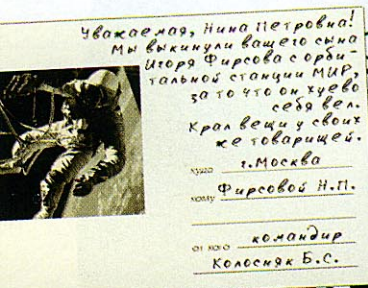 Уважаемая, Нина Петровна!
Мы выкинули вашего сына
Игоря Фирсова с орби-
тальной станции МИР,
за то что он хуево
себя вел.
Крал вещи у своих
же товарищей.
куда г. Москва
кому Фирсовой Н.П.
от кого командир
Колосняк Б.С.